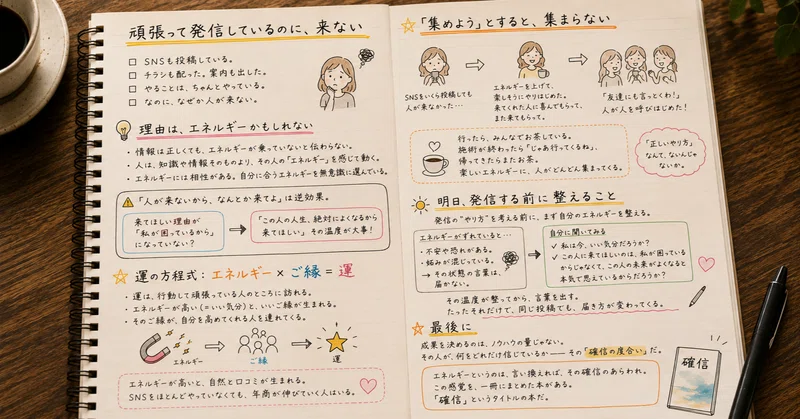 頑張って発信しているのに、来ない
□ SNSも投稿している。
□ チラシも配った。案内も出した。
□ やることは、ちゃんとやっている。
□ なのに、なぜか人が来ない。
理由は、エネルギーかもしれない
・情報は正しくても、エネルギーが乗っていないと伝わらない。
・人は、知識や情報そのものより、その人の「エネルギー」を感じて動く。
・エネルギーには相性がある。自分に合うエネルギーを無意識に選んでいる。
「人が来ないから、なんとか来てよ」は逆効果。
来てほしい理由が
「私が困っているから」
になっていない?
「この人の人生、絶対によくなるから
来てほしい」 その温度が大事!
運の方程式:エネルギー × ご縁 = 運
・運は、行動して頑張っている人のところに訪れる。
・エネルギーが高い(=いい気分)と、いいご縁が生まれる。
・そのご縁が、自分を高めてくれる人を連れてくる。
エネルギー
ご縁
運
エネルギーが高いと、自然と口コミが生まれる。
SNSをほとんどやっていなくても、年商が伸びていく人はいる。
「集めよう」とすると、集まらない
SNSをいくら投稿しても
人が来なかった…
エネルギーを上げて、
楽しそうにやりはじめた。
来てくれた人に喜んでもらって、
また来てもらう。
「友達にも言っとくわ!」
人が人を呼びはじめた!
行ったら、みんなでお茶している。
施術が終わったら「じゃあ行ってくるね」
帰ってきたらまたお茶。
楽しいエネルギーに、人がどんどん集まってくる。
「正しいやり方」
なんて、ないんじゃ
ないか。
明日、発信する前に整えること
発信の“やり方”を考える前に、まず自分のエネルギーを整える。
エネルギーがずれていると…
・不安や恐れがある。
・妬みが混じっている。
→ その状態の言葉は、
届かない。
自分に聞いてみる
✓ 私は今、いい気分だろうか?
✓ この人に来てほしいのは、私が困っている
からじゃなくて、この人の未来がよくなると
本気で思えているからだろうか?
その温度が整ってから、言葉を出す。
たったそれだけで、同じ投稿でも、届き方が変わってくる。
最後に
成果を決めるのは、ノウハウの量じゃない。
その人が、何をどれだけ信じているか── その「確信の度合い」だ。
エネルギーというのは、言い換えれば、その確信のあらわれ。
この感覚を、一冊にまとめた本がある。
「確信」というタイトルの本だ。
確信